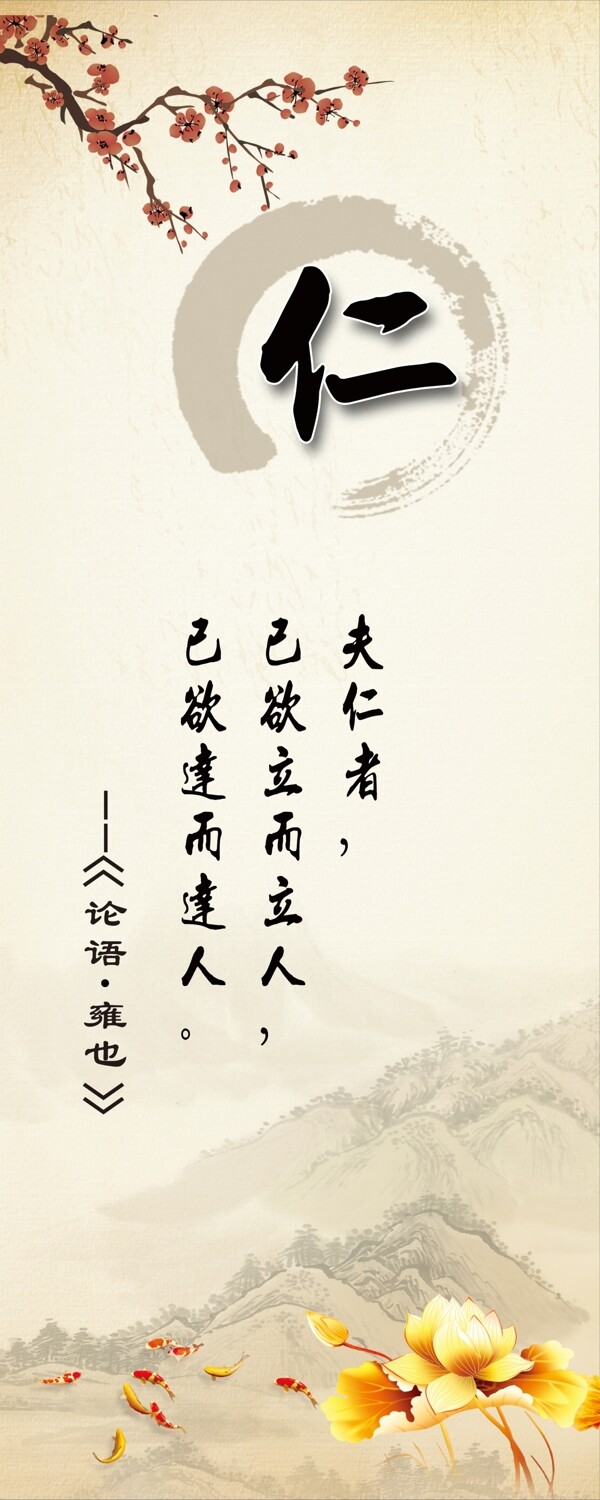 仁
夫仁者，
已欲立而立人，
已欲達而達人。
——《论语·雍也》